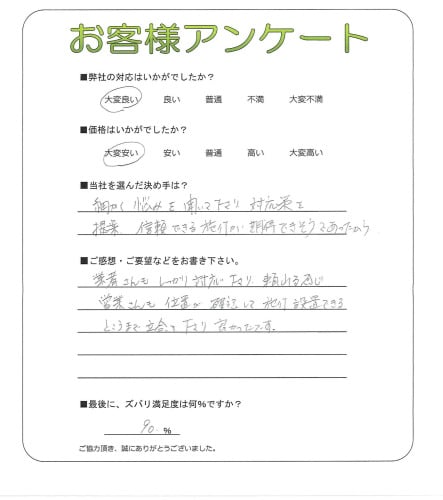 お客様アンケート
■弊社の対応はいかがでしたか?
大変良い 良い 普通 不満 大変不満
■価格はいかがでしたか?
大変安い 安い 普通 高い 大変高い
■当社を選んだ決め手は?
細かく悩みを聞いて下さり 対応策を
提案 信頼できる施行が期待できそうであったから
■ご感想・ご要望などをお書き下さい。
業者さんもしっかり対応下さり 頼れる感じ
営業さんも位置が確認して施行設置できる
ところまで立合って下さり 良かったです。
■最後に、ズバリ満足度は何%ですか?
90 %
ご協力頂き、誠にありがとうございました。